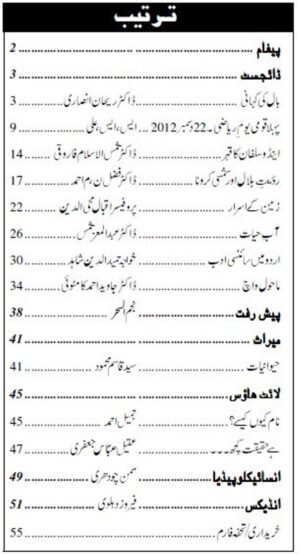 ترتیب
پیغام ........ 2
ڈائجسٹ ........ 3
بال کی کہانی ........ ڈاکٹر ریحان انصاری ........ 3
پہلا قومی یومِ ریاضی۔22دسمبر 2012 ........ ایس، ایس، علی ........ 9
اینڈوسلفان کا قہر ........ ڈاکٹر شمس الاسلام فاروقی ........ 14
رویتِ ہلال اور شمسی کرونا ........ ڈاکٹر فضل ن، م احمد ........ 17
زمین کے اسرار ........ پروفیسر اقبال محی الدین ........ 22
آبِ حیات ........ ڈاکٹر عبدالمعز شمس ........ 26
اردو میں سائنسی ادب ........ خواجہ حمید الدین شاہد ........ 30
ماحول واچ ........ ڈاکٹر جاوید احمد کامٹوئی ........ 34
پیش رفت ........ نجم السحر ........ 38
میراث ........ 41
حیوانیات ........ سید قاسم محمود ........ 41
لائٹ ھاؤس ........ 45
نام کیوں کیسے؟ ........ جمیل احمد ........ 45
ہے حقیقت کچھ۔۔۔ ........ عقیل عباس جعفری ........ 47
انسائیکلوپیڈیا ........ سمن چودھری ........ 49
انڈیکس ........ فیروز دہلوی ........ 51
خریداری/تحفہ فارم ........ 55